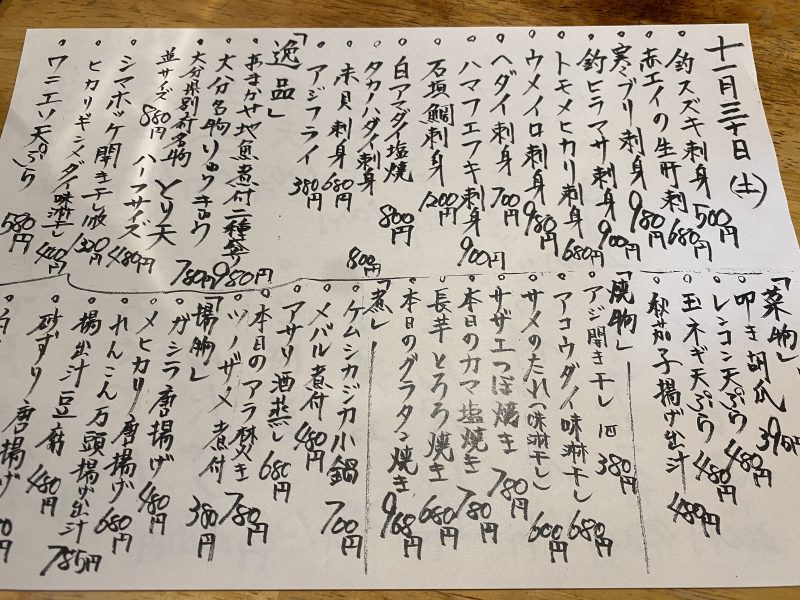 十一月三十日(土)
釣スズキ刺身 500円
赤エイの生肝刺 680円
寒ブリ刺身 980円
釣ヒラマサ刺身 900円
トモメヒカリ刺身 680円
ウメイロ刺身 980円
ヘダイ刺身 700円
ハマフエフキ刺身 900円
石垣鯛刺身 1200円
白アマダイ塩焼 800円
タカノハダイ刺身 800円
赤貝刺身 680円
アジフライ 380円
「逸品」
おまかせ地魚煮付二種盛 980円
大分名物りゅうきゅう 780円
大分県別府名物 とり天
並サイズ 880円 ハーフサイズ 480円
シマホッケ開き干し 1300円
ヒカリギンメダイ味淋干し 400円
ワニエソ天ぷら 580円
「菜物」
叩き胡瓜 395円
レンコン天ぷら 480円
玉ネギ天ぷら 480円
秋茄子揚げ出汁 480円
「焼物」
アジ開き干し 380円
アコウダイ味淋干し 680円
サメのたれ(味淋干し) 600円
サザエつぼ焼き 780円
本日のカマ塩焼き 780円
長芋とろろ焼き 680円
本日のグラタン焼き 968円
「煮」
ケムシカジカ小鍋 700円
メバル煮付 480円
アサリ酒蒸し 680円
本日のアラ焚き 780円
ツノザメ煮付 380円
「揚物」
ガシラ唐揚げ 480円
メヒカリ唐揚げ 680円
れんこん万頭揚げ出汁 785円
揚出汁豆腐 480円
砂ずり唐揚げ
唐揚げ